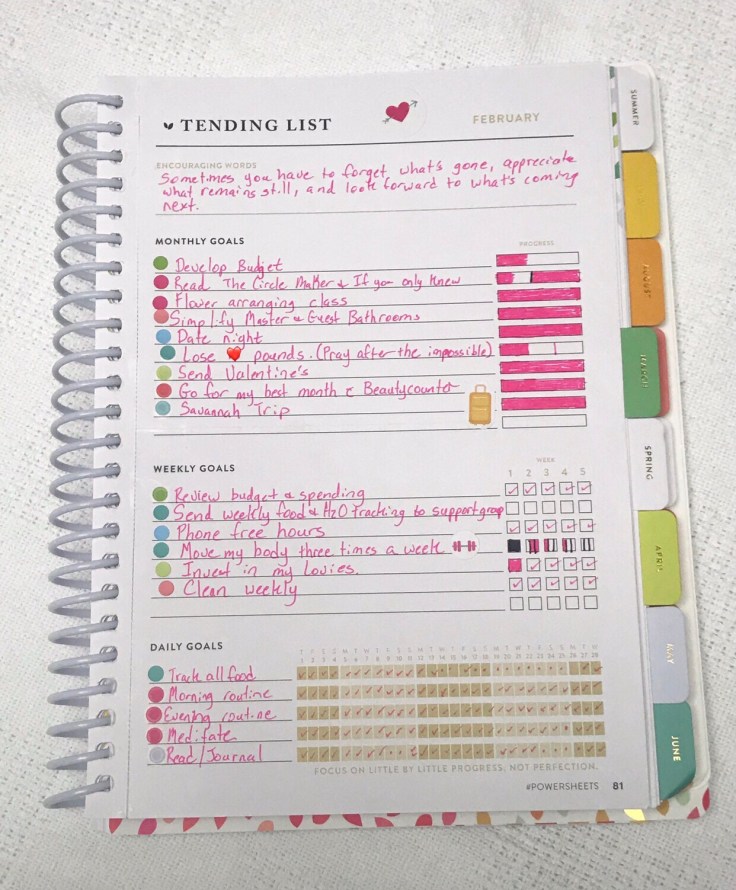 TENDING LIST
FEBRUARY
ENCOURAGING WORDS
Sometimes you have to forget what's gone, appreciate
what remains still, and look forward to what's coming
next.
MONTHLY GOALS
PROGRESS
Develop Budget
Read The Circle Maker & If you only knew
Flower arranging class
Simplify Master & Guest Bathrooms
Date night
Lose ❤️ pounds. (Pray after the impossible)
Send Valentine's
Go for my best month c Beautycounter
Savannah Trip
WEEKLY GOALS
WEEK
1 2 3 4 5
Review budget & spending
Send weekly food & H2O tracking to support group
Phone free hours
Move my body three times a week
Invest in my Lovies.
Clean weekly
DAILY GOALS
1 2 3 4 5 6 7 8 9 10 11 12 13 14 15 16 17 18 19 20 21 22 23 24 25 26 27 28
Track all food
Morning routine
Evening routine
Meditate
Read/Journal
FOCUS ON LITTLE BY LITTLE PROGRESS, NOT PERFECTION.
#POWERSHEETS 81
SUMMER
AUGUST
MARCH
SPRING
APRIL
MAY
JUNE